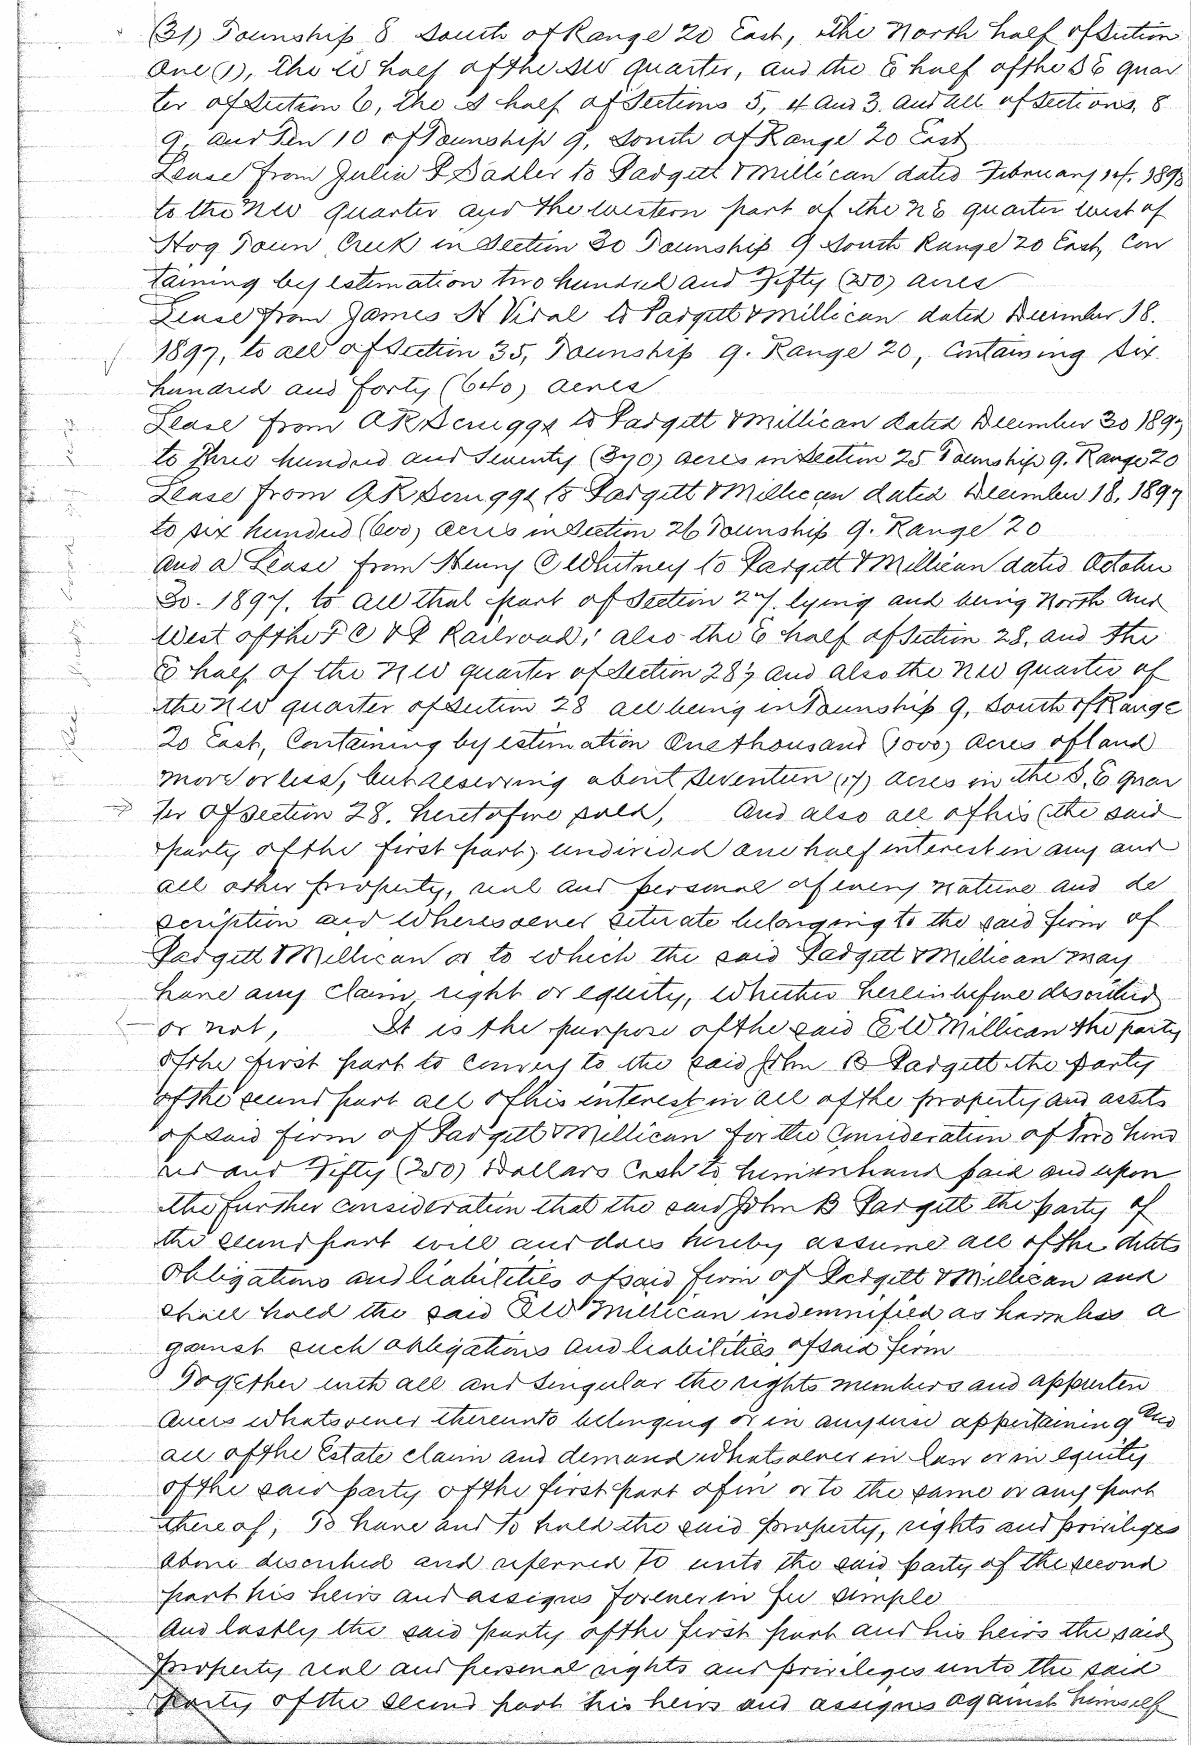 (31) Township 8 South of Range 20 East, The North half of Section
One (1), The W half of the SW quarter, and the E half of the S E quar
ter of Section 6, The S half of Sections 5, 4 and 3. and all of Sections, 8
9, and Ten 10 of Township 9, South of Range 20 East
Lease from Julia P Sadler to Padgett & Millican dated February 14. 1898
to the NW quarter and the western part of the NE quarter west of
Hog Town Creek in Section 30 Township 9 South Range 20 East, Con
taining by estimation two hundred and Fifty (250) acres
Lease from James H Vidal to Padgett & Millican dated December 18.
1897, to all of Section 35, Township 9. Range 20, Containing Six
hundred and forty (640) acres
Lease from A R Scruggs to Padgett & Millican dated December 30 1897
to Three hundred and Seventy (370) acres in Section 25 Township 9. Range 20
Lease from A R Scruggs to Padgett & Millican dated December 18, 1897
to six hundred (600) acres in Section 26 Township 9. Range 20
and a Lease from Henry C Whitney to Padgett & Millican dated October
30. 1897. to all that part of Section 27. lying and being North and
West of the F C & P Railroad; also the E half of Section 28, and the
E half of the NW quarter of Section 28; and also the NW quarter of
the NW quarter of Section 28 all being in Township 9, South of Range
20 East, Containing by estimation One thousand (1000) acres of land
more or less, but reserving about Seventeen (17) acres in the S, E quar
ter of Section 28. heretofore sold, And also all of his (the said
party of the first part) undivided one half interest in any and
all other property, real and personal of every nature and de
scription and wheresoever situate belonging to the said firm of
Padgett & Millican or to which the said Padgett & Millican may
have any claim, right or equity, whether hereinbefore described
or not, It is the purpose of the said E W Millican the party
of the first part to convey to the said John B Padgett the party
of the second part all of his interest in all of the property and assets
of said firm of Padgett & Millican for the Consideration of Two hund
red and Fifty (250) Dollars Cash to him in hand paid and upon
the further consideration that the said John B Padgett the party of
the second part will and does hereby assume all of the debts
obligations and liabilities of said firm of Padgett & Millican and
shall hold the said E W Millican indemnified as harmless a
gainst such obligations and liabilities of said firm
Together with all and singular the rights members and appurten
ances whatsoever thereunto belonging or in anywise appertaining and
all of the Estate claim and demand whatsoever in law or in equity
of the said party of the first part of in or to the same or any part
thereof, To have and to hold the said property, rights and privileges
above described and referred to unto the said party of the second
part his heirs and assigns forever in fee simple
And lastly the said party of the first part and his heirs the said
property real and personal rights and privileges unto the said
party of the second part his heirs and assigns against himself